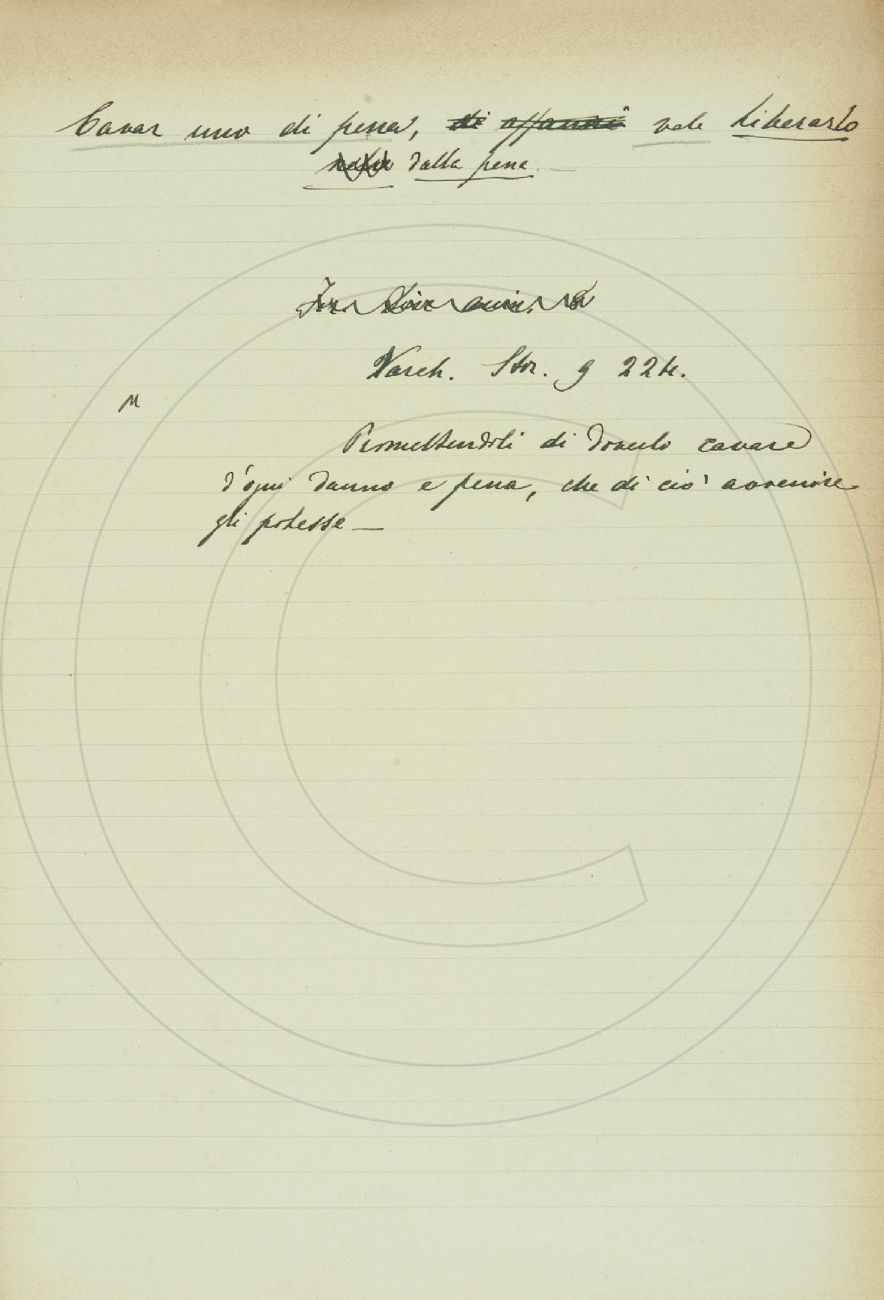 Cavar uno di pena, di affanni vale Liberarlo
dalla pena.
Varch. Stor. 9 224.
M
Promettendoli di doverlo cavare
d'ogni danno e pena, che di ciò avvenire
gli potesse —